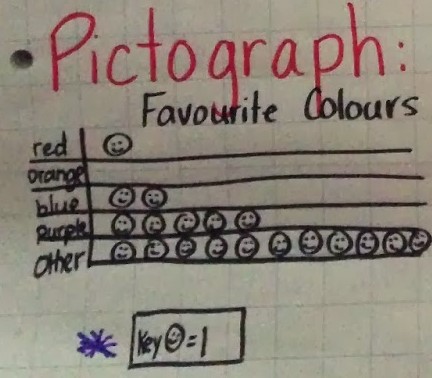 • Pictograph:
Favourite Colours
red
orange
blue
purple
other
Key☺=1